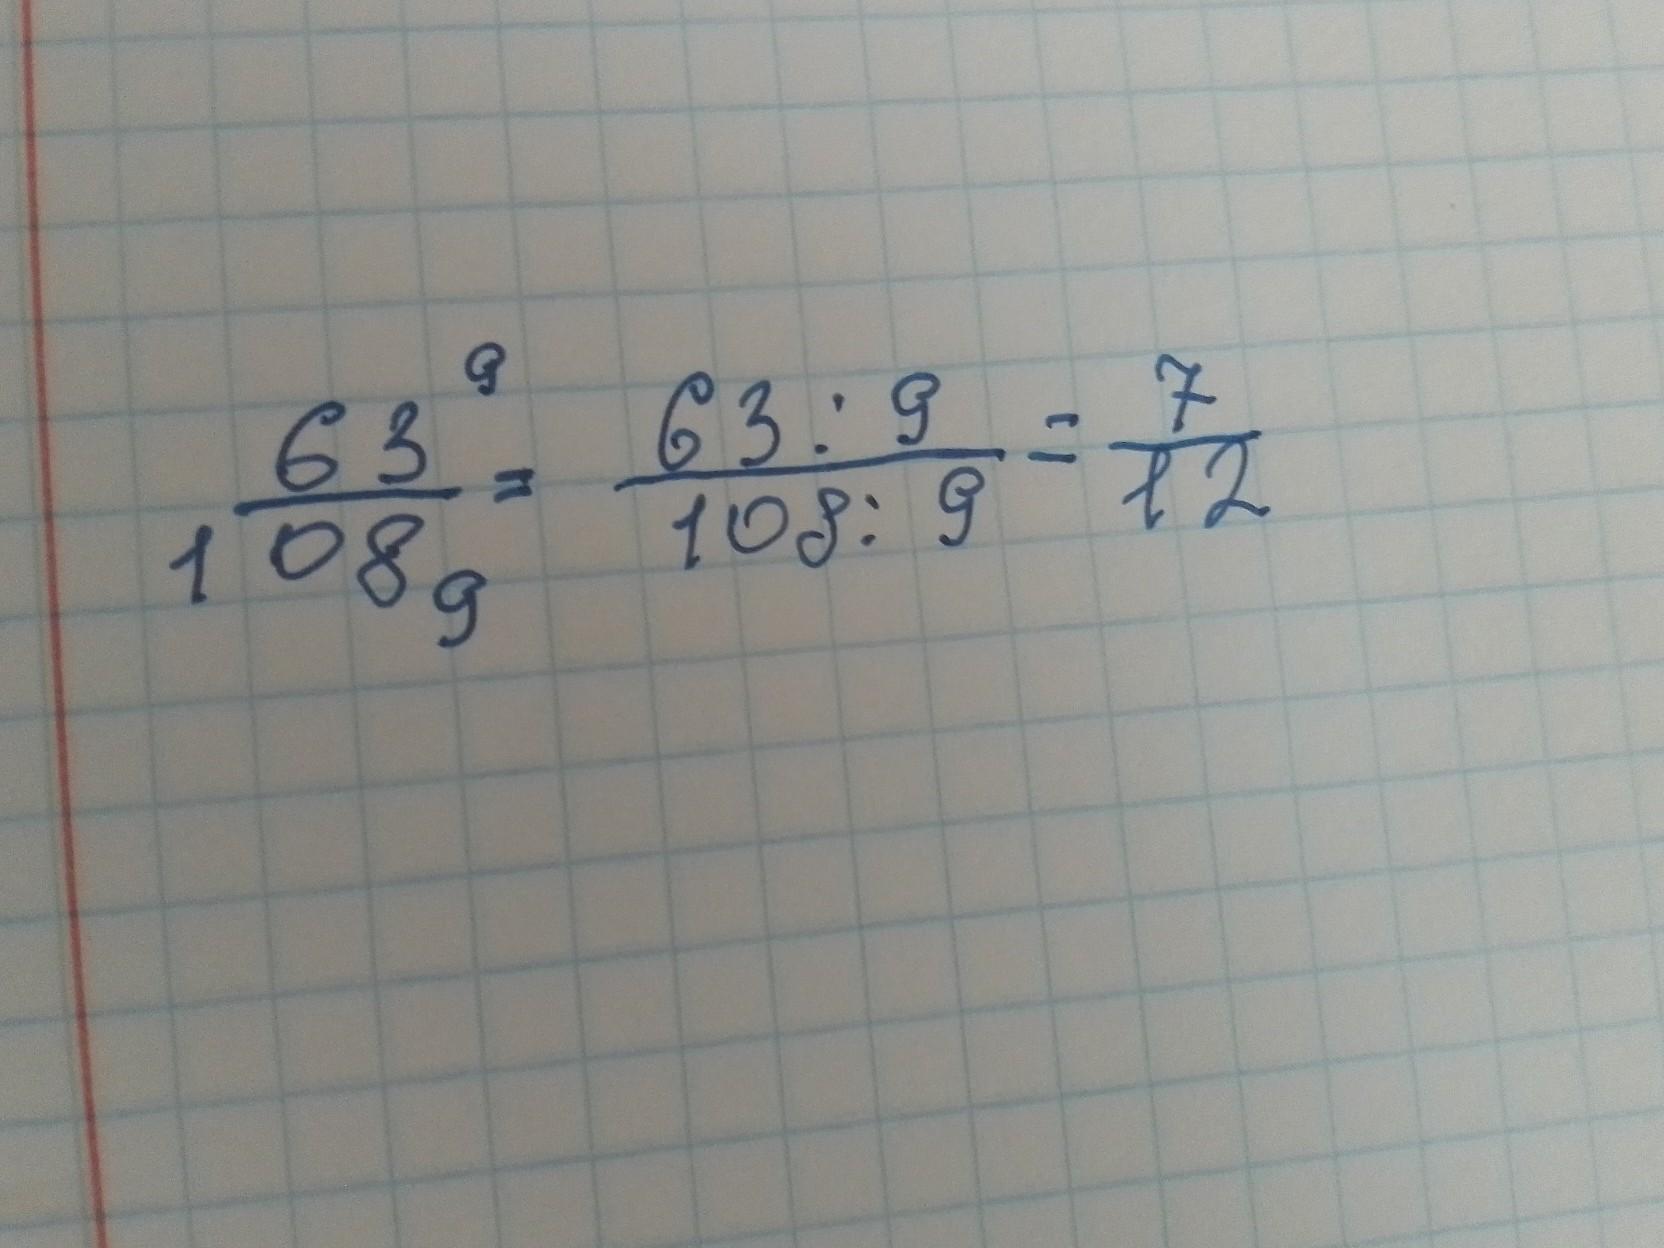 63⁹/108₉ = 63:9/108:9 = 7/12